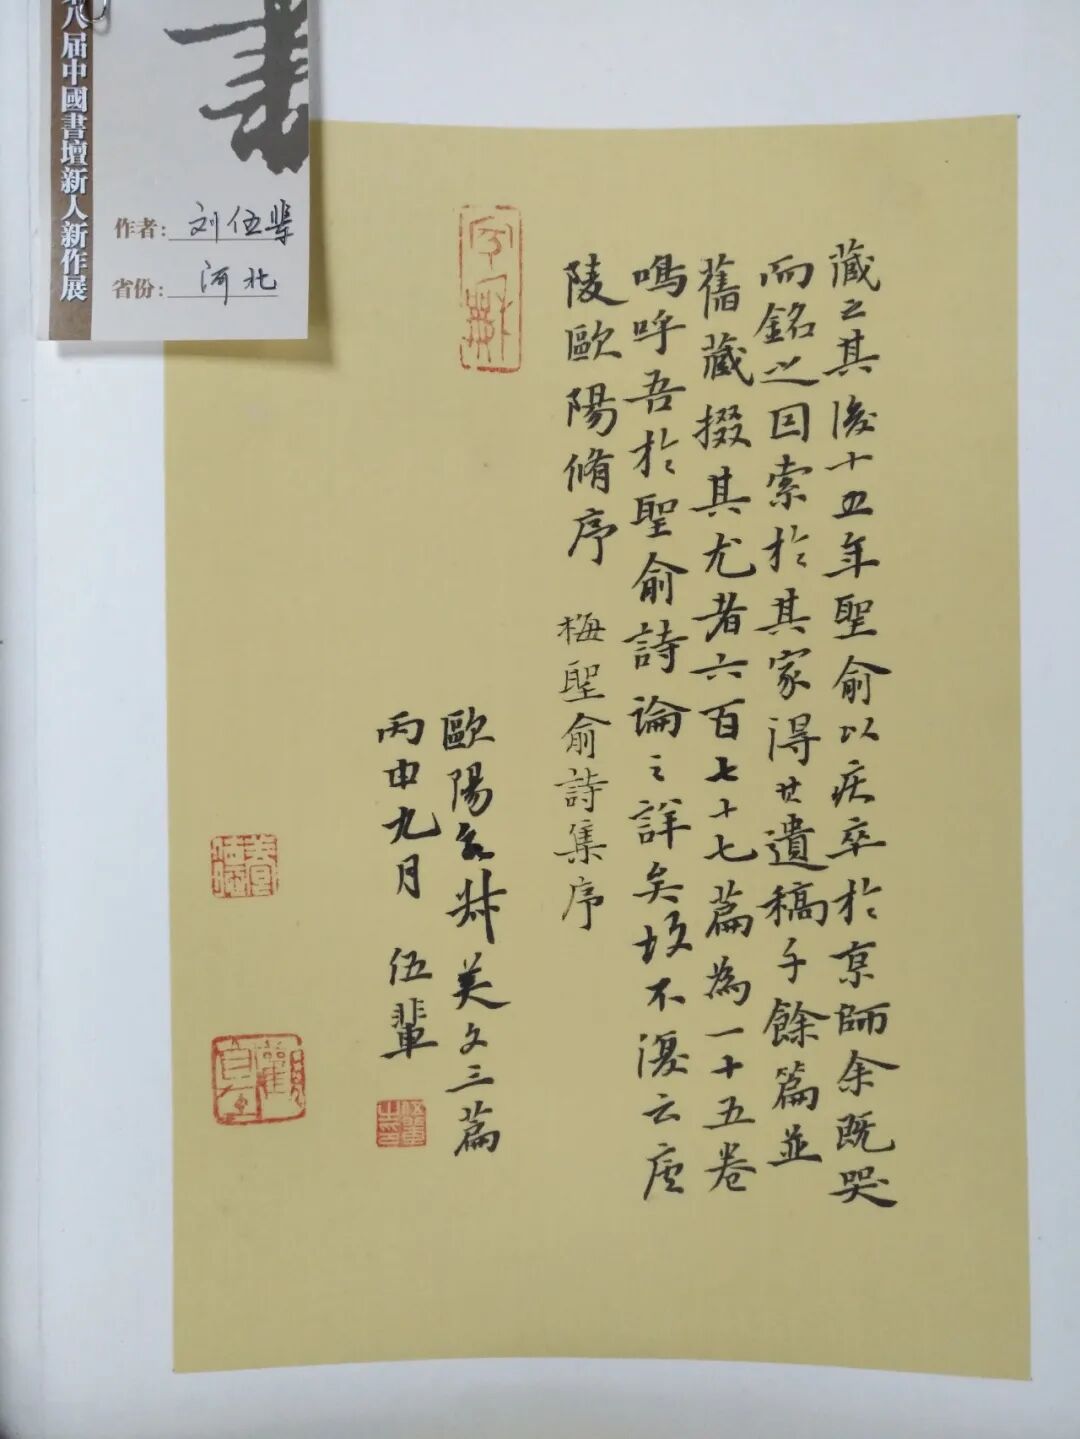 八届中國書壇新人新作展
書
作者：刘伍輩
省份：河北
藏之其後十五年聖俞以疾卒於京師余既哭
而銘之因索於其家得其遺稿千餘篇並
舊藏掇其尤者六百七十七篇為一十五卷
嗚呼吾於聖俞詩論之詳矣故不復云廬
陵歐陽脩序 梅聖俞詩集序
歐陽永叔美文三篇
丙申九月 伍輩